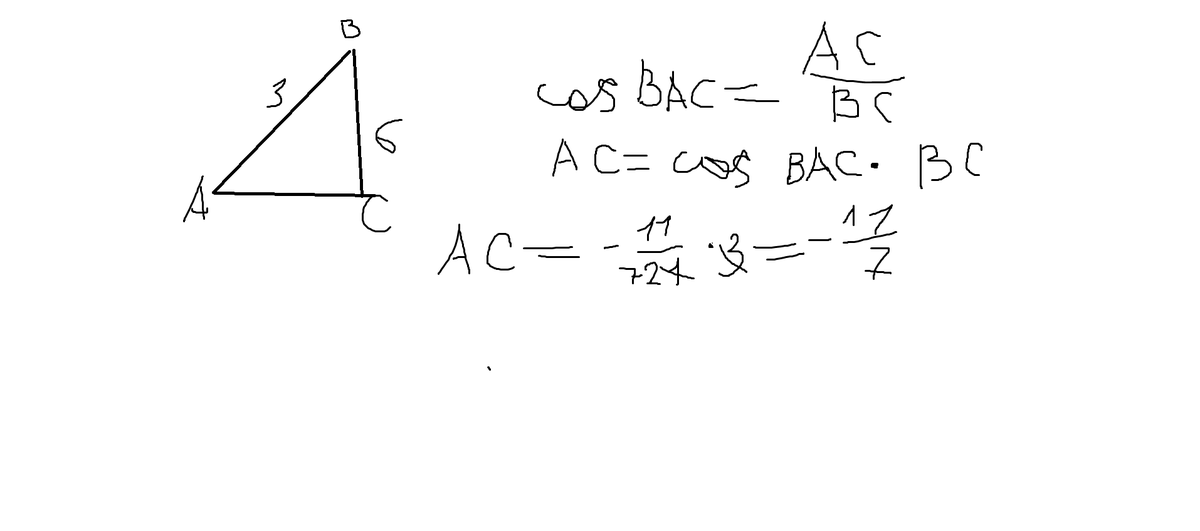 B
3
6
A
C
cos BAC = AC/BC
AC = cos BAC · BC
AC = - 11/ · 3 = - 11/7